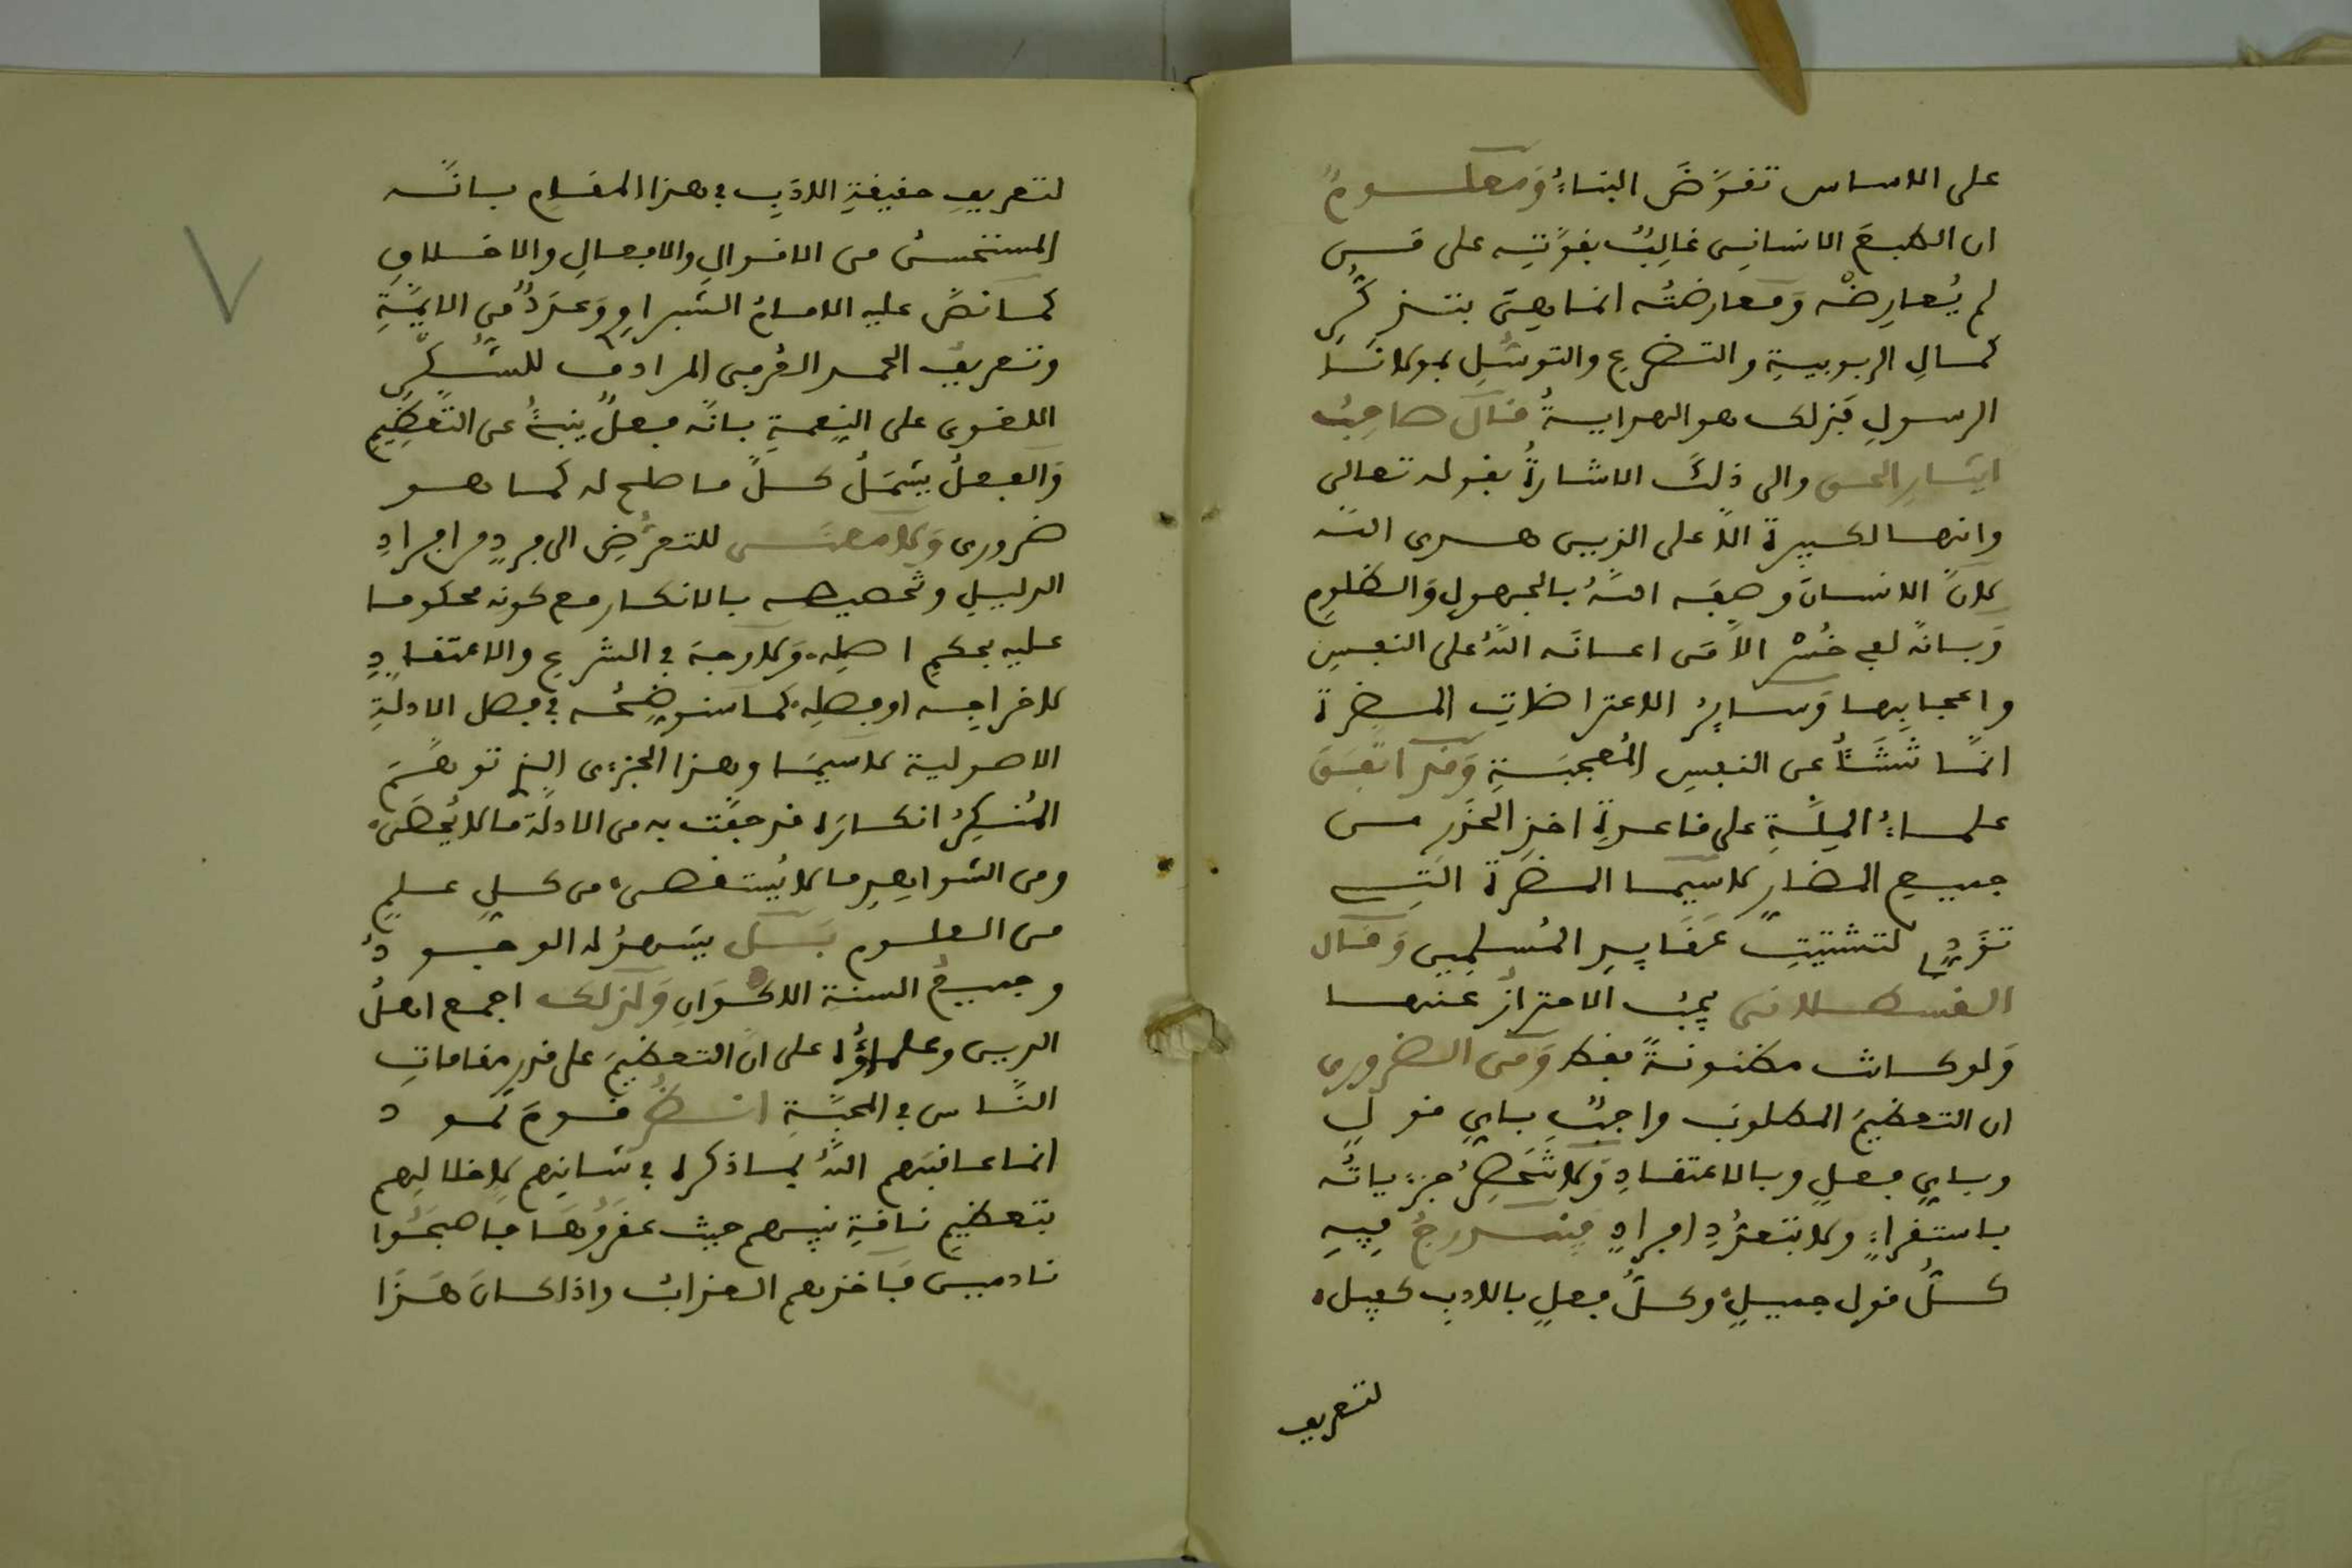 على الاساس تقوّضَ البناءُ وَمعلومٌ
ان الطبعَ الانسانى غالِبٌ بقوّتِه على مَن
لم يُعارِضْه وَمعارضتُه انما هى بتذكّرِ
كمالِ الربوبيةِ والتضرعِ والتوسّلِ بمولانا
الرسولِ فبذلك هو الهدايةُ قال صاحبُ
ايثار الحق والى ذلكَ الاشارةُ بقوله تعالى
وانها لكبيرة الّا على الذين هدى الله
لانّ الانسانَ وصفه اللهُ بالجهولِ وَالظلومِ
وَبانّه لفى خُسْر الّا مَن اعانَه اللهُ على النفسِ
واعجابِها وَسائِرُ الاعتراضاتِ المضرة
انّما تَنْشَأُ عن النفسِ المُعجبَةِ وَقد اتفقَ
علماءُ المِلّةِ على قاعدةِ اخذِ الحذَرِ من
جميعِ المضار لاسيما المضرة التى
تؤدِى لتشتيتِ عَقَايدِ المُسلِمين وَقال
القسطلانى يجبُ الاحترازُ عنها
وَلو كانت مظنونةً فقط وَمن الضرورى
ان التعظيمَ المطلوبَ واجبٌ باىِ قولٍ
وباىِ فعلٍ وبالاعتقادِ وَلا تَنْحَصِرُ جزءياتُه
باستقراءٍ ولا بتعدُّدِ افرادٍ فيندرجُ فِيهِ
كلُّ قولٍ جميلٍ وكلُّ فعلٍ بالادبِ كفيل
لتعريف
لتعريفِ حقيقةِ الادَبِ فى هذا المقامِ بانّه
المستحسنُ من الاقوالِ والافعالِ والاخلاقِ
كما نصَّ عليه الامامُ الشبراوى وَعددٌ من الايمّةِ
وتعريفُ الحمد العُرفى المرادف للشُّكْرِ
اللغوى على النِعمةِ بانّه فعلٌ ينبئُ عن التّعظِيمِ
وَالفعلُ يشمَلُ كلَّ ما صلح له كما هو
ضرورى وَلا معنى للتعرُّضِ الى فردٍ من افرادِ
الدليلِ وتخصيصه بالانكار مع كونِه محكوما
عليه بحكمِ اصلِه وَلا وجهَ فى الشرعِ والاعتقادِ
لاخراجِه او فصلِه كما سنوضِحُه فى فصل الادلةِ
الاصولية لاسيّما وهذا الجزءى الذى توهّمَ
المُنكِرُ انكارَه قد حفّت به من الادلّة ما لا يُحْصَى
ومن الشواهِدِ ما لا يُستقصى من كلِ علمٍ
من العلوم بَل يشهدُ له الوجودُ
وجميعُ السنةِ الاكوَانِ وَلذلك اجمع اهلُ
الدين وعلماؤُه على انّ التعظيمَ على قدرِ مقاماتِ
النّاس فى المحبّةِ انظُر قومَ ثمود
انما عاقبَهم اللهُ بما ذكره فى شانِهم لاخلالِهم
بتعظيمِ ناقةِ نبيهم حيث عقرُوهَا فاصبَحُوا
نادمينَ فَاخذهم العذابُ واذا كانَ هَذَا